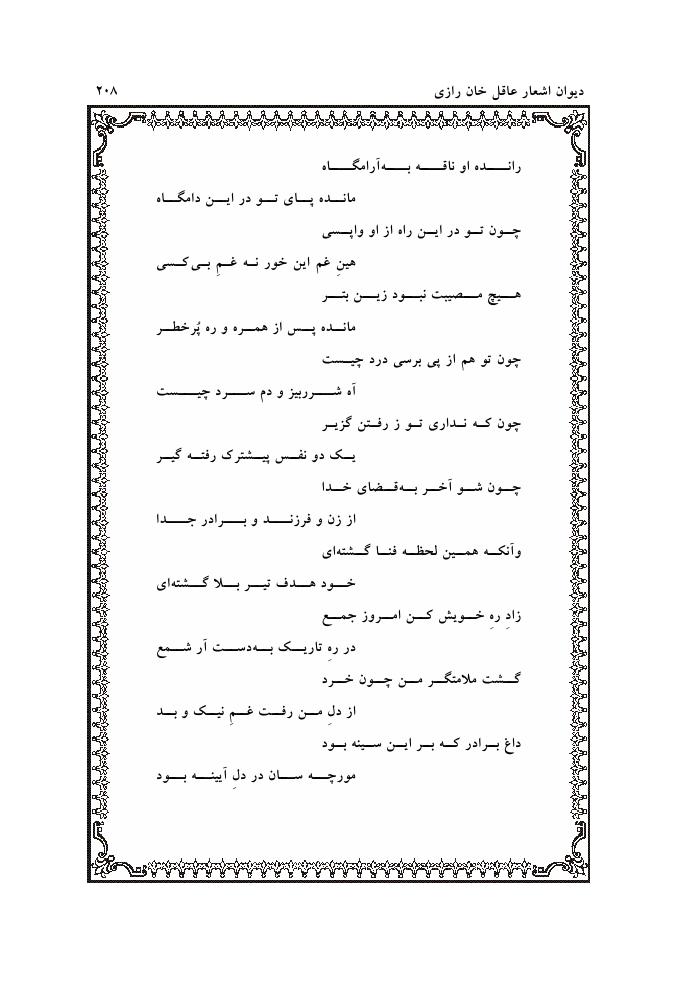 دیوان اشعار عاقل خان رازی ۲۰۸
رانده او ناقه به‌آرامگاه
مانده پای تو در این دامگاه
چون تو در این راه از او واپسی
هینِ غم این خور نه غمِ بی‌کسی
هیچ مصیبت نبود زین بتر
مانده پس از همره و ره پُرخطر
چون تو هم از پی برسی درد چیست
آه شررییز و دم سرد چیست
چون که نداری تو ز رفتن گزیر
یک دو نفس پیشترک رفته گیر
چون شو آخر به‌قضای خدا
از زن و فرزند و برادر جدا
وآنکه همین لحظه فنا گشته‌ای
خود هدف تیر بلا گشته‌ای
زادِ رهِ خویش کن امروز جمع
در رهِ تاریک به‌دست آر شمع
گشت ملامتگر من چون خرد
از دلِ من رفت غمِ نیک و بد
داغ برادر که بر این سینه بود
مورچه سان در دلِ آیینه بود